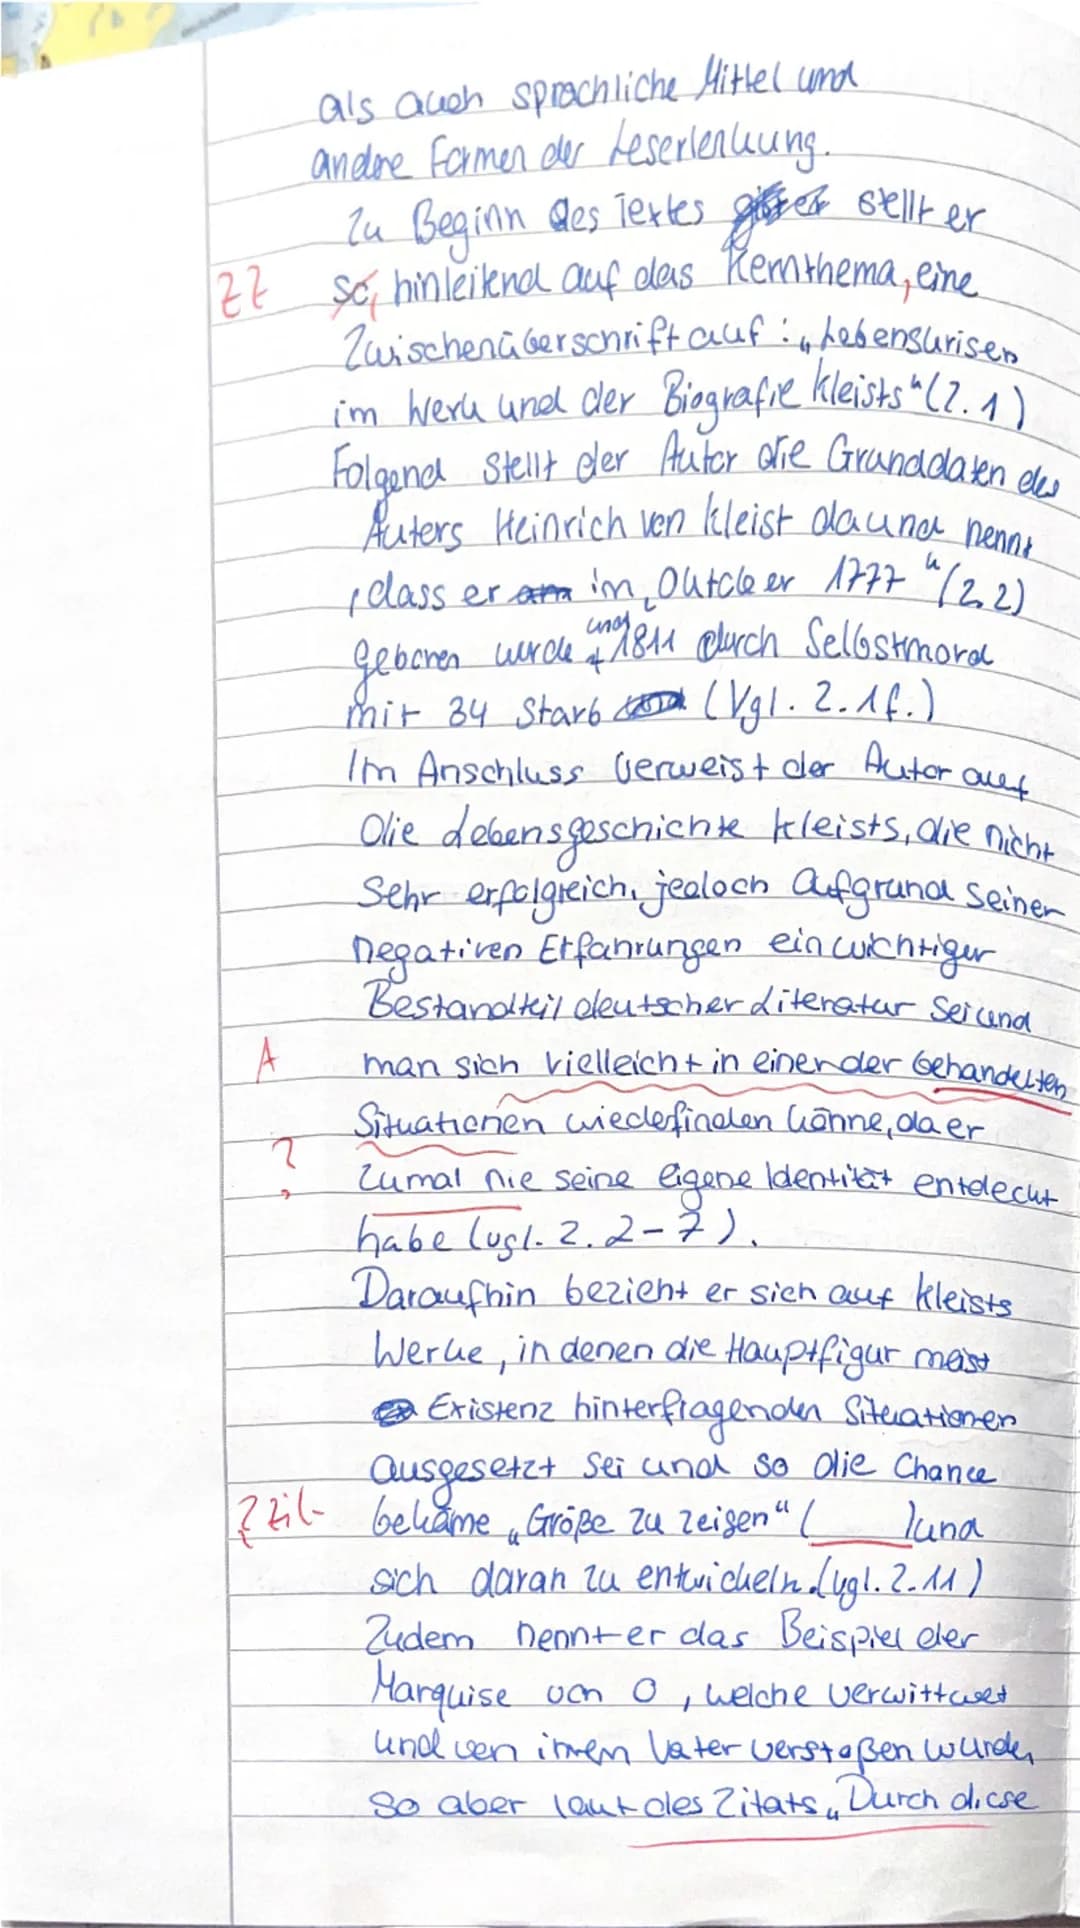 als auch sprachliche Mittel und
andere Formen der Leserlenkung.
Zu Beginn des Textes stellt er
so, hinleitend auf das Kernthema, eine
ZZ
Zwischenüberschrift auf: „Lebenskrisen
im Werk und der Biografie Kleists" (Z. 1)
Folgend stellt der Autor die Granddaten des
Autors Heinrich von Kleist da und nennt
, dass er im „Outcle er 1777 " (Z. 2)
geboren wurde und 1811 durch Selbstmord
mit 34 starb (Vgl. Z. 1f.)
Im Anschluss verweist der Autor auf
die Lebensgeschichte Kleists, die nicht
sehr erfolgreich, jedoch aufgrund seiner
negativen Erfahrungen ein wichtiger
Bestandteil deutscher Literatur sei und
A
man sich vielleicht in einer der behandelten
Situationen wiedefinden könne, da er
?
zumal nie seine eigene Identität entdeckt
habe (vgl. Z. 2-7).
Daraufhin bezieht er sich auf Kleists
Werke, in denen die Hauptfigur meist
Existenz hinterfragenden Situationen
ausgesetzt sei und so die Chance
bekäme „Größe zu zeigen" ( ) und
sich daran zu entwickeln. (vgl. Z. 11)
Zudem nennt er das Beispiel der
Marquise von O, welche verwittwet
und von ihrem Vater verstoßen wurde,
so aber laut des Zitats „Durch diese